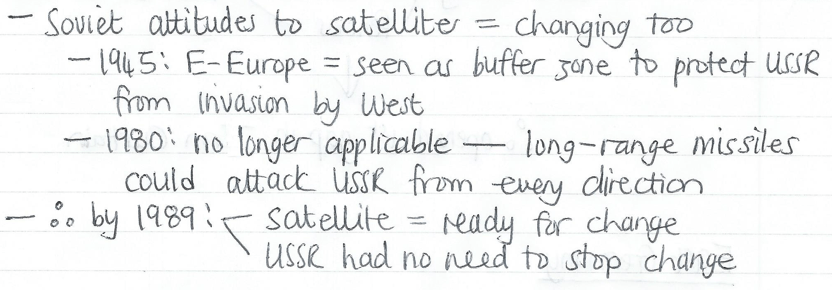 - Soviet attitudes to satellites = changing too
- 1945: E-Europe = seen as buffer zone to protect USSR
from invasion by West
- 1980: no longer applicable — long-range missiles
could attack USSR from every direction
- ∴ by 1989: satellite = ready for change
USSR had no need to stop change